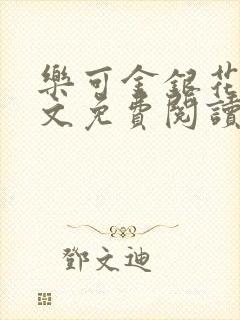 樂可金銀花
文免費閱讀
鄧文迪